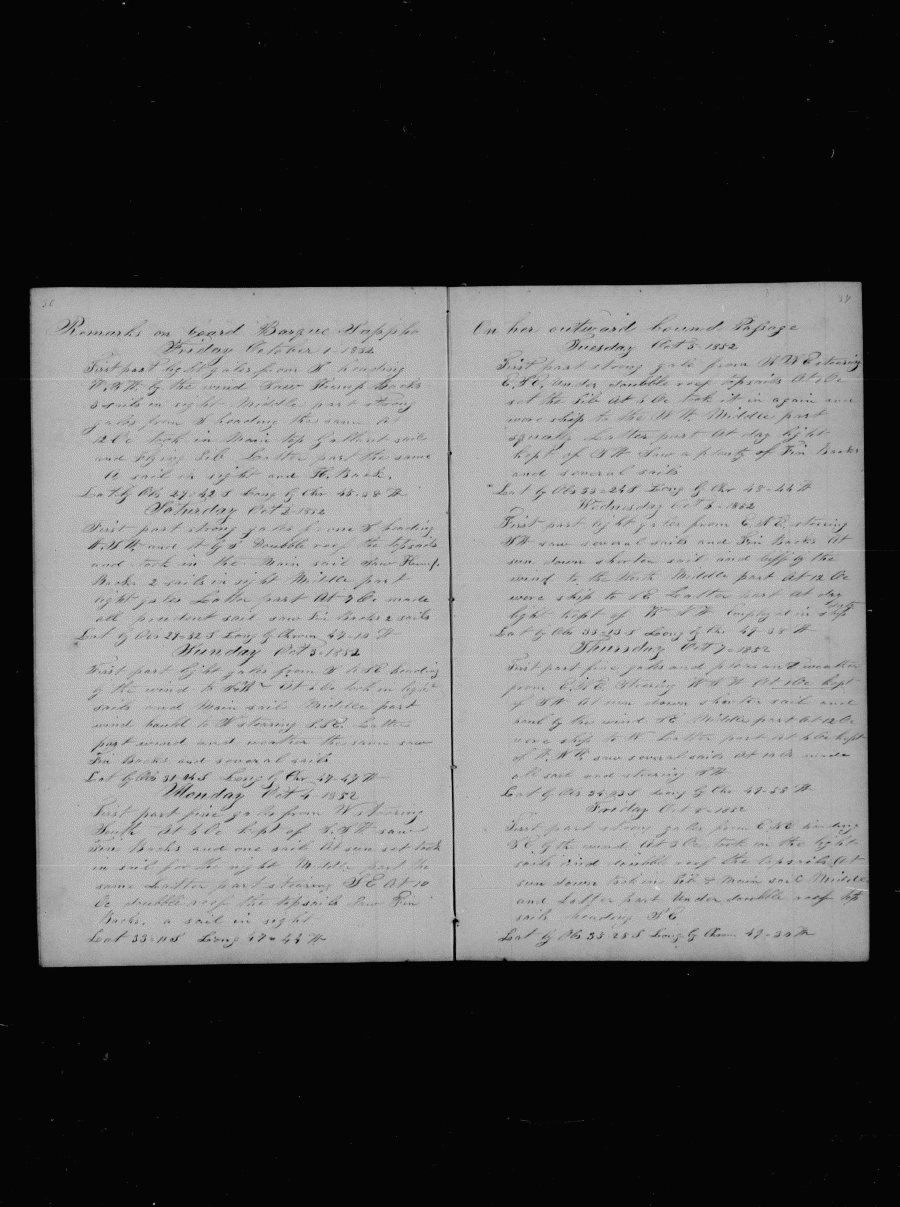 38
Remarks on board Barque Sappho
Friday October 1-1852
First part light gales from S heading
W.S.W. by the wind Saw Hump Backs
3 sails in sight Middle part strong
gales from S heading the same at
12 Oc took in Main top Gallant sails
and Flying Jib Latter part the same
A sail in sight and H. Back.
Lat by Obs 29-42 S Long by Chr 48-38 W
Saturday Oct 2-1852
First part strong gales from S heading
and Double reef the topsails
and took in the Main sail Saw Hump
Backs 2 sails in sight Middle part
light gales Latter part At 7 Oc made
all prudent sail saw Fin Backs 2 sails
Lat by Obs 29-52 S Long by Chrom 47-10 W
Sunday Oct 3-1852
First part light gales from heading
by the wind to At 6 Oc took in light
sails and Main sail Middle part
wind hauld to steering S.S.E. Latter
part wind and weather the same saw
Fin Backs and several sails
Lat by Obs 31-24 S Long by Chr 47-47 W
Monday Oct 4-1852
First part fine gales from W steering
South At 6 Oc kept of S.S.W. saw
Fin Backs and one sail At sun set took
in sail for the night Middle part the
same Latter part steering S E At 10
Oc double reef the topsails Saw Fin
Backs. a sail in sight
Lat 33-11 S Long 47-44 W
39
On her outward bound Passage
Tuesday Oct 5-1852
First part strong gale from steering
E.S.E. Under doubble reef topsails At Oc
set the Jib At 5 Oc took it in again and
wore ship to the Middle part
squaly Latter part At day light
kept of S W Saw a plenty of Fin Backs
and several sails
Lat by Obs 33-24 S Long by Chr 48-44 W
Wednesday Oct 6-1852
First part light gales from E.N.E. steering
SW saw several sails and Fin Backs At
sun down shorten sail and luff by the
wind to the North Middle part At 12 Oc
wore ship to S E Latter part At day
light kept of W S W employd in ship
duty
Lat by Obs 33-13 S Long by Chr 49-38 W
Thursday Oct 7-1852
First part fine gales and pleasant weather
from E.N.E. Steering W S W At 1 Oc kept
of S W At sun down shorten sail and
haul by the wind S E Middle part At 12 Oc
wore ship to N Latter part At 6 Oc kept
of saw several sails At 10 Oc made
all sail and steering S W
Lat by Obs 34-23 S Long by Chr 49-58 W
Friday Oct 8-1852
First part strong gales from E.N.E. heading
S E by the wind At 3 Oc took in the light
sails and doubble reef the topsails At
sun down took in Jib & Main sail Middle
and Latter part Under doubble reef top
sails heading S E
Lat by Obs 33-28 S Long by Chrom 49-30 W